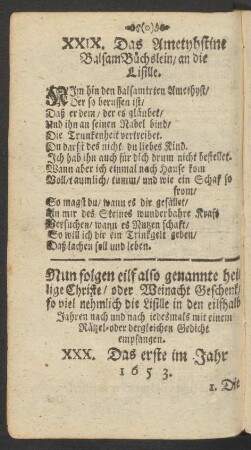 XXIX. Das Ametyhstine
Balsam Büchslein/ an die
Lisille.
NIm hin den balsamirten Amethyst/
Der so beruffen ist/
Daß er dem/ der es gläubet/
Und ihn an seinen Nabel bind/
Die Trunkenheit vertreibet.
Du darfst des nicht/ du liebes Kind.
Ich hab ihn auch für dich drum nicht bestellet.
Wann aber ich einmal nach Hause kom
Voll/ taumlich/ tumm/ und wie ein Schaf so
from/
So magst du/ wann es dir gefället/
An mir des Steines wunderbahre Kraft
Versuchen/ wann es Nutzen schaft/
So will ich dir ein Trinkgelt geben/
Daß lachen soll und leben.
Nun folgen eilf also genannte hei
lige Christe/ oder Weinacht Geschenk/
so viel nehmlich die Lisille in den eilfhalb
Jahren nach und nach iedesmals mit einem
Rätzel- oder dergleichen Gedicht
empfangen.
XXX. Das erste im Jahr
1653.
1. Die